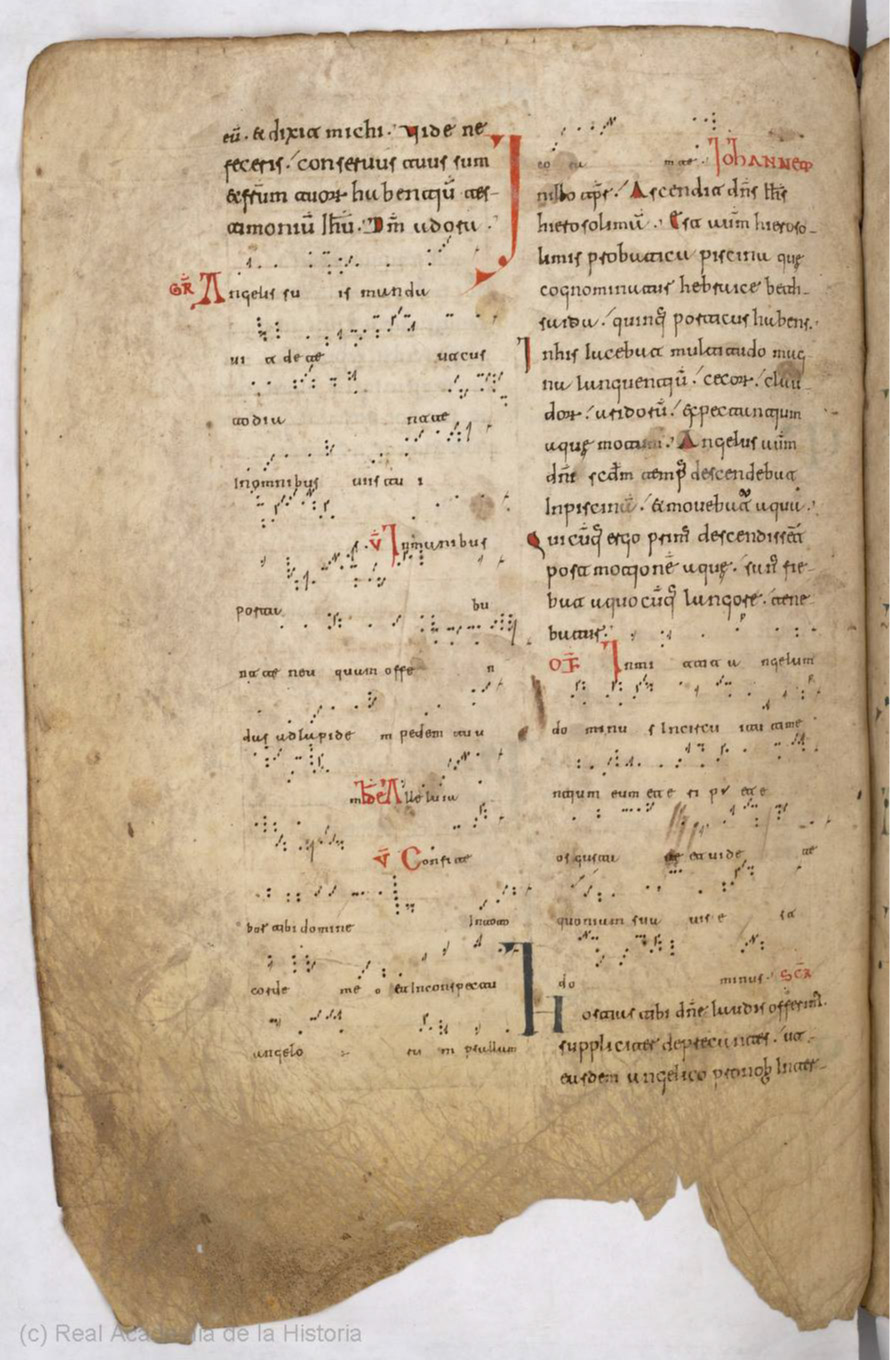 eū. & dixit michi. Vide ne
feceris. conseruus tuus sum
& frm̄ tuoꝝ habentiū tes-
timoniū Ihū. Dm̄ adora.
GR̄ Angelis su is manda
ui t de te ut cus
todia nt te
In omnibus uiis tu i
V̄ In manibus
porta bu
nt te neu quam offe n
das ad lapide m pedem tuu
m Alleluia
V̄ Confite
bor tibi domine In toto
corde me o et In conspectu
angelo ru m psallam
IOHANNEM
Ascendit dn̄s Ihs̄
hierosolimā. Est autm̄ hieroso-
limis probatica piscina que
cognominatur hebraice beth-
saida. quinq̄ porticus habens.
In his iacebat multitudo mag-
na languentiū. cecoꝝ. clau-
doꝝ. aridoꝝ. expectantium
aque motum. Angelus autm̄
dn̄i scd̄m temp̄ descendebat
In piscinā. & mouebat aqua.
Quicūq̄ ergo prim̄ descendisset
post motionē aque. san̄ fie-
bat a quocūq̄ langore. tene-
batur.
OF̄ Inmi tet a ngelum
do minu s In circu itu time
ntium eum et e ri pi et e
os gustate et uide te
quoniam sua uis e st
do minus. SCR̄
Hostias tibi dn̄e laudis offerim̄.
suppliciter deprecantes. ut
easdem angelico pro nob̄ Inter-